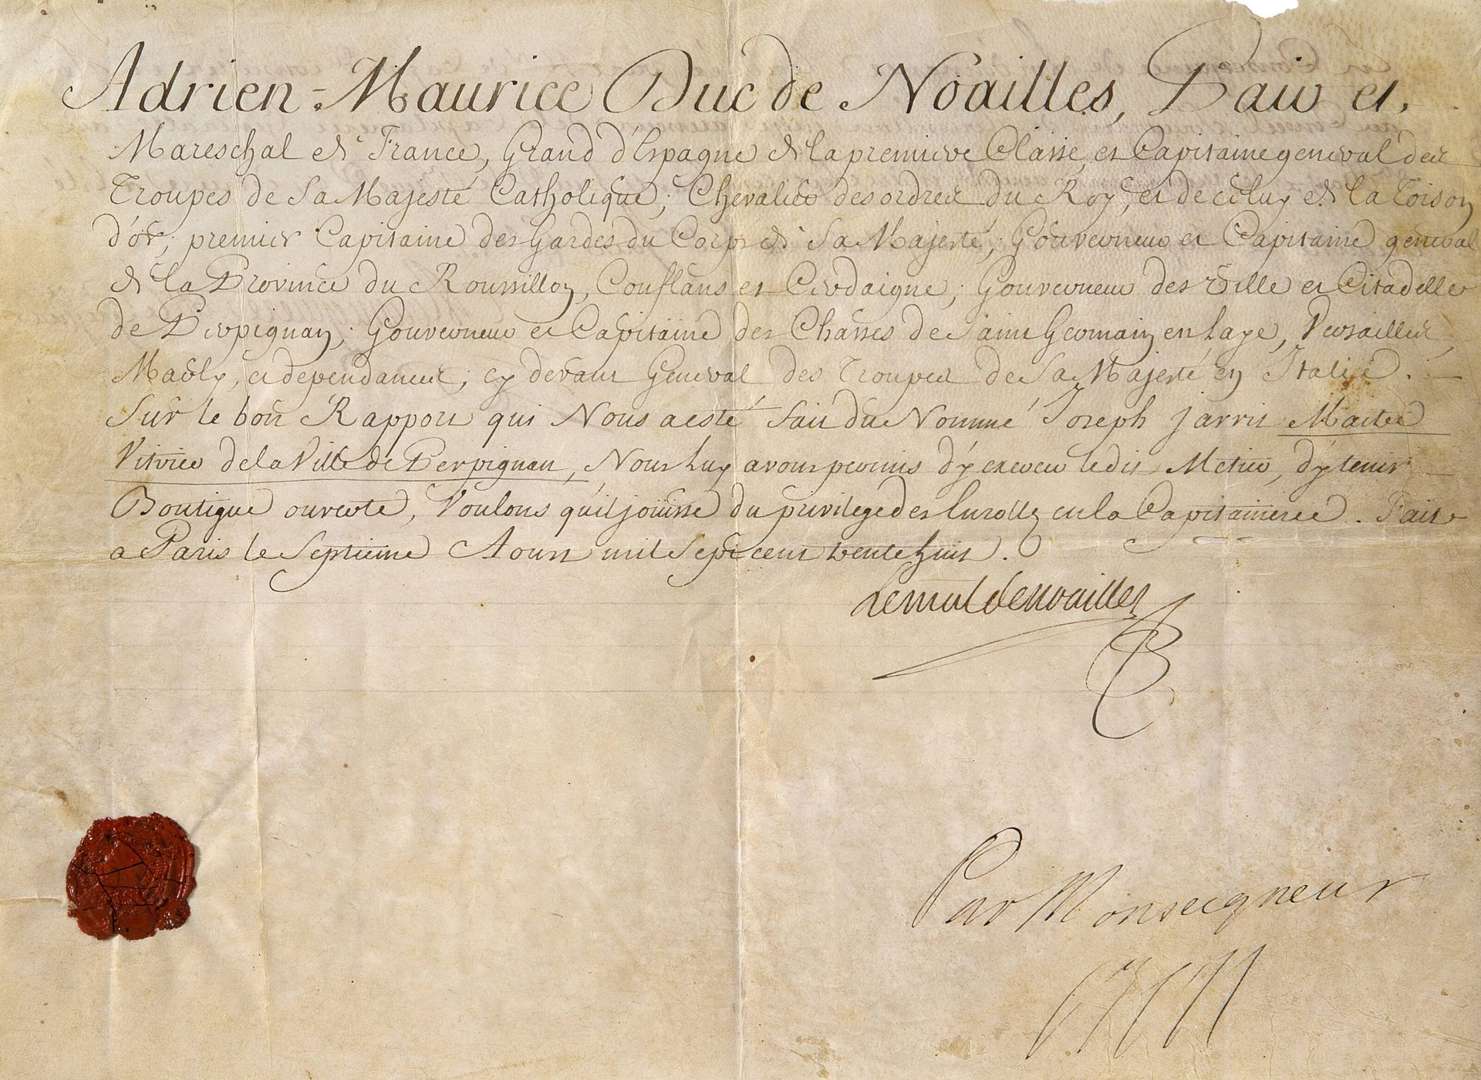 Adrien-Maurice Duc de Noailles, Pair et,
Mareschal de France, Grand d'Espagne de la premiere Classe, et Capitaine general des
Troupes de Sa Majesté Catholique; Chevalier des ordres du Roy, et de celuy de la Toison
d'or; premier Capitaine des Gardes du Corps de Sa Majesté; Gouverneur et Capitaine general
de la Province du Roussillon, Conflans et Cerdaigne; Gouverneur des Ville et Citadelle
de Perpignan; Gouverneur et Capitaine des Chasses de Saint Germain en Laye, Versailles,
Marly, et dependances; cy devant General des Troupes de Sa Majesté en Italie.
Sur le bon Rapport qui Nous a esté fait du Nommé Joseph Jarris Maitre
Vitrier de la Ville de Perpignan, Nous luy avons permis d'y exercer ledit Métier, d'y tenir
Boutique ouverte, Voulons qu'il jouisse du privilege des Enrollez en la Capitainerie. Fait
a Paris le Septieme Aoust mil Sept cent trente huit.
Le mal de Noailles
Par Monseigneur